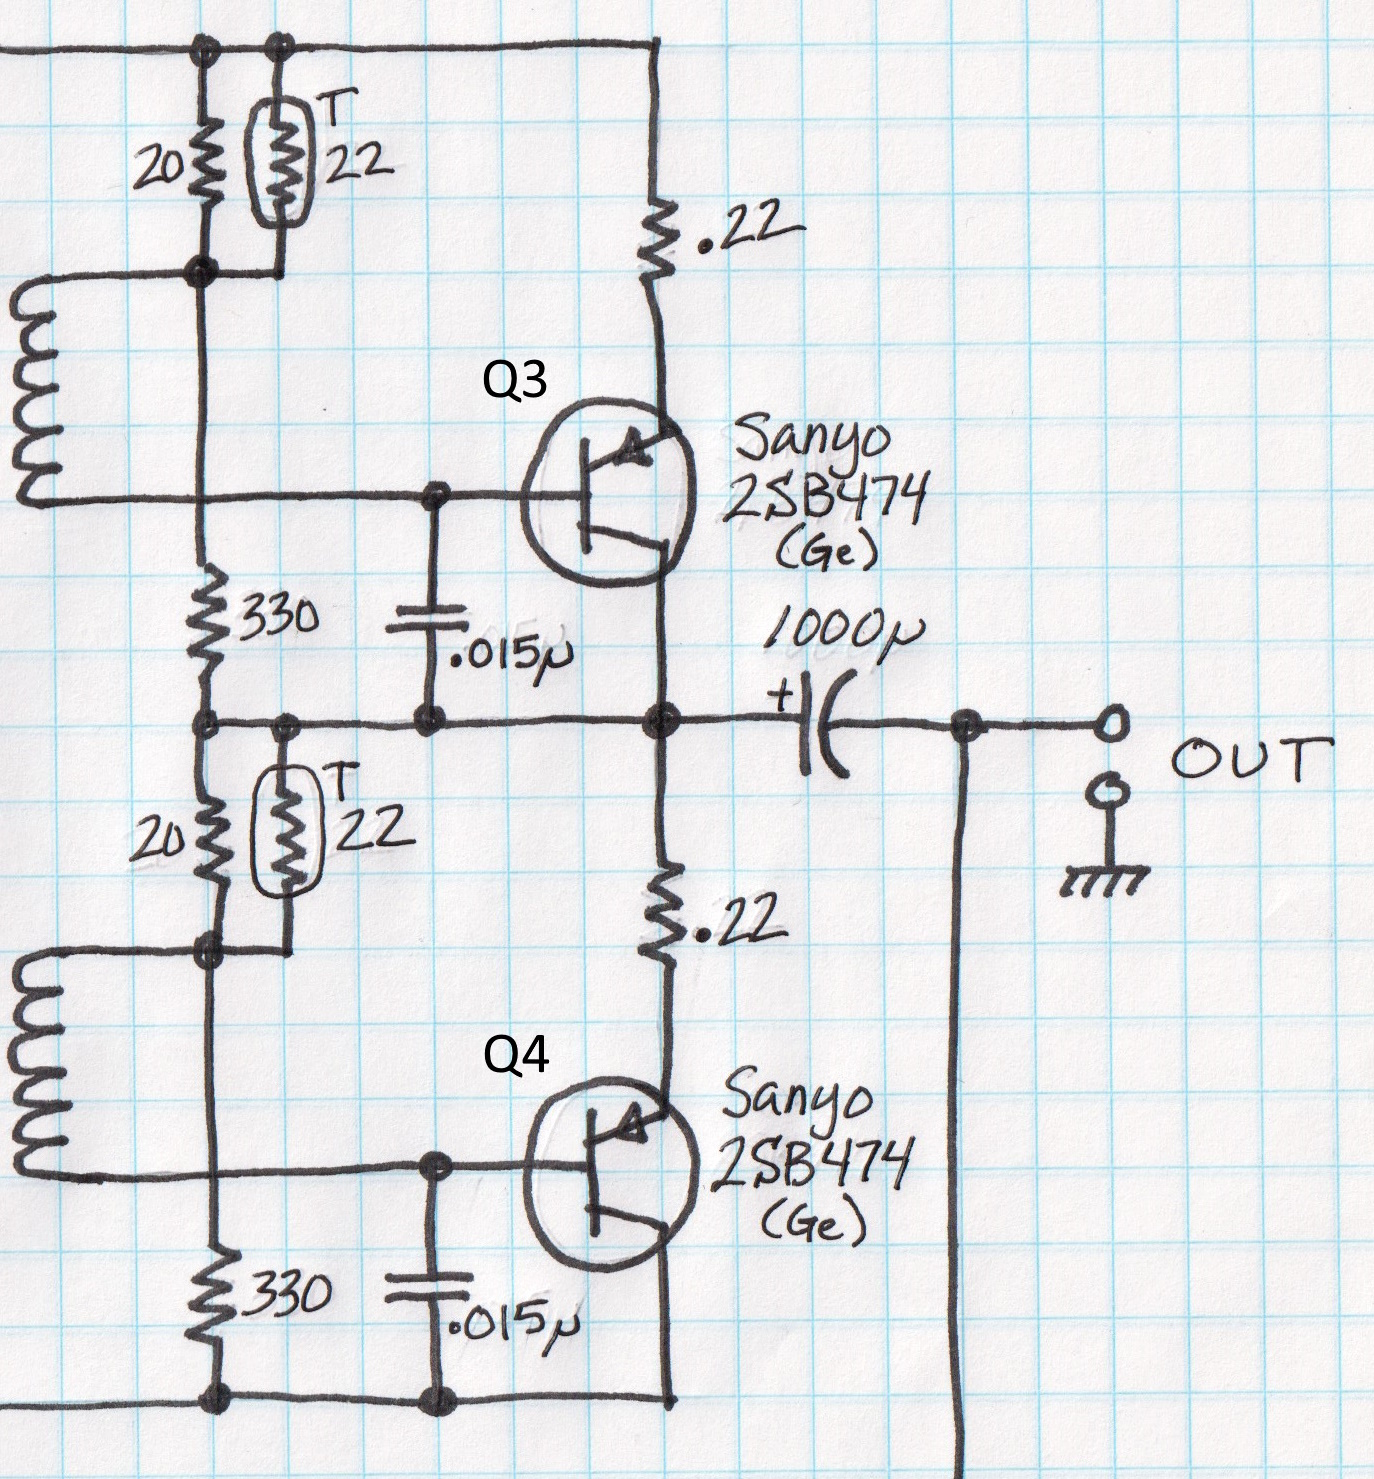 T
20
22
.22
Q3
Sanyo
2SB474
(Ge)
330
.015µ
1000µ
+
OUT
T
20
22
.22
Q4
Sanyo
2SB474
(Ge)
330
.015µ